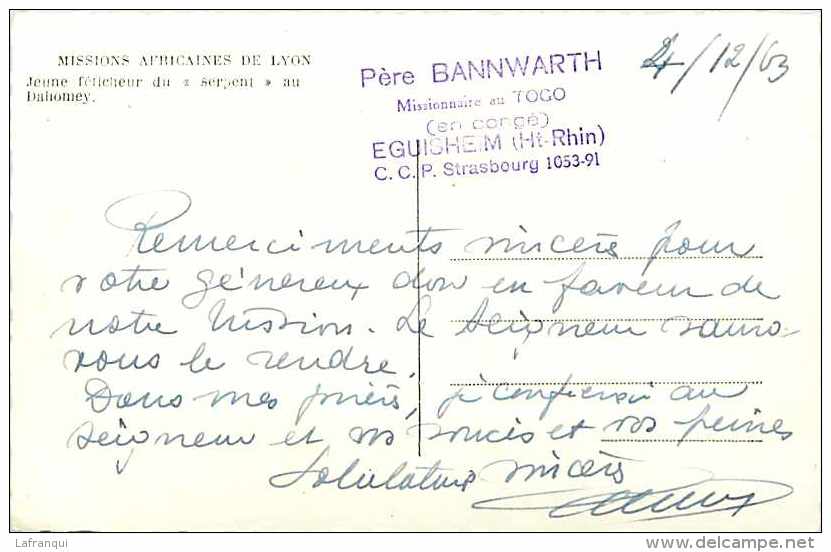 MISSIONS AFRICAINES DE LYON
Jeune féticheur du « serpent » au
Dahomey.
Père BANNWARTH
Missionnaire au TOGO
(en congé)
EGUISHEIM (Ht-Rhin)
C. C. P. Strasbourg 1053-91
4/12/63
Remerciments sincères pour
votre généreux don en faveur de
notre Mission. Le Seigneur saura
vous le rendre.
Dans mes prières, je confierai au
Seigneur et vos soucis et vos peines
Salutations sincères
Lafranqui
www.delcampe.net